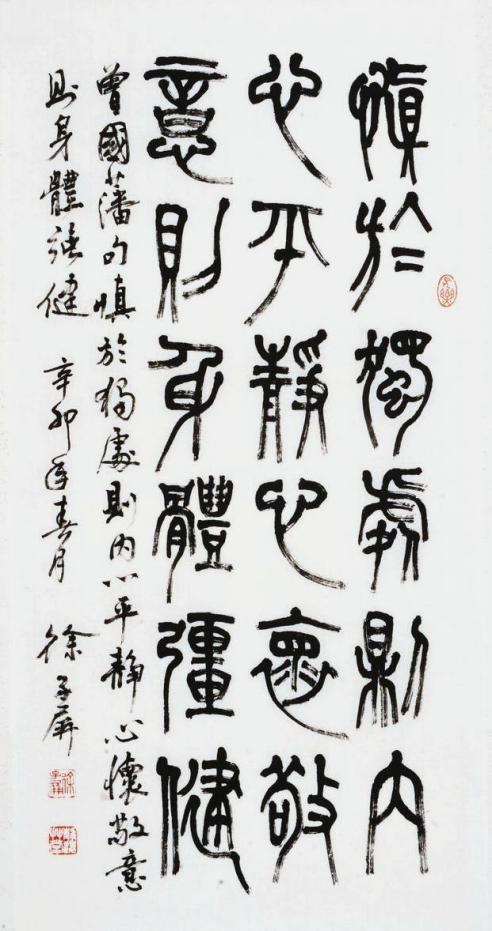 慎於獨處則內
心平靜心懷敬
意則身體彊健
曾國藩句慎於獨處則內心平靜心懷敬意
則身體強健 辛卯年春月 徐子屏